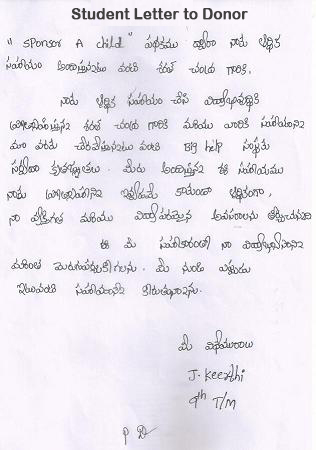 Student Letter to Donor
" sponsor A child" పథకము ద్వారా నాకు ఆర్థిక
సహాయం అందిస్తున్నటు వంటి శరత్ చంద్ర గారికి,
నాకు ఆర్థిక సహాయం చేసి విద్యాభివృద్ధికి
శరత్ చంద్ర గారికి మరియు వారికి సహాయాన్ని
మా వరకు చేరవేస్తున్నటు వంటి Big help సంస్థకు
కృతజ్ఞతలు. మీరు అందిస్తున్న ఈ సహాయము
నాకు ఇవ్వడమే కాకుండా ఆర్థికంగా,
నా వ్యక్తిగత మరియు విద్యాపరమైన అవసరాలను తీర్చుచున్నది
ఈ మీ సహకారంతో నా విద్యాభ్యాసాన్ని
మరింత మెరుగుపర్చుకోగలను. మీ నుండి ఎప్పుడు
ఇటువంటి సహాయాన్ని కోరుతున్నాను.
మీ విధేయురాలు
J. Keerthi
9th T/M